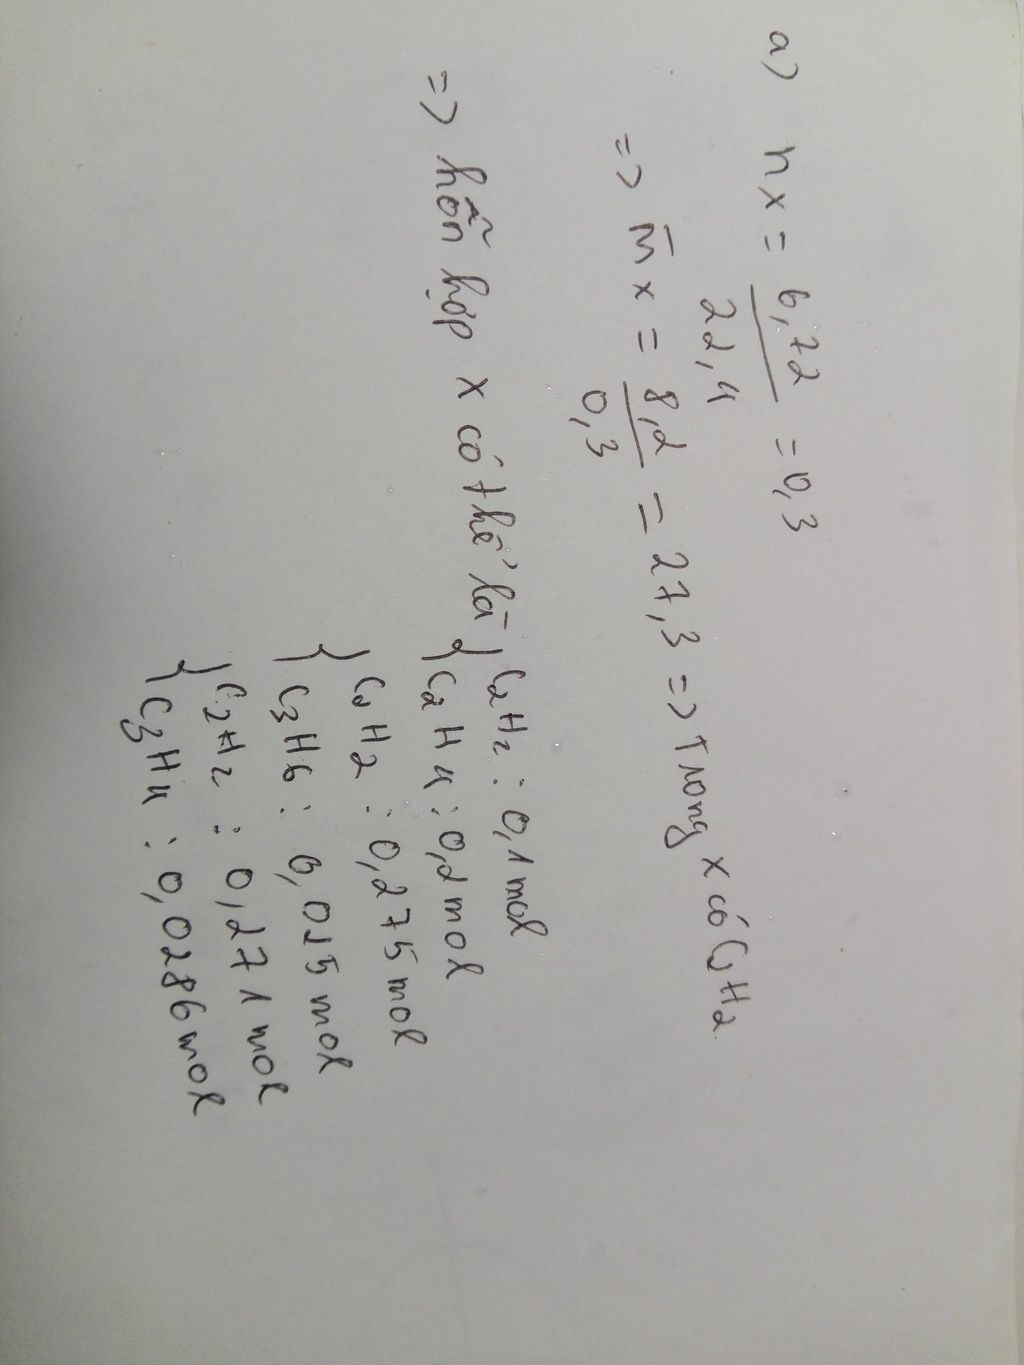 a) nx = 6,72 / 22,4 = 0,3
=> M̄x = 8,2 / 0,3 = 27,3 => Trong x có C2H2
=> hỗn hợp x có thể là { C2H2 : 0,1 mol
C2H4 : 0,2 mol
{ C2H2 : 0,275 mol
C3H6 : 0,025 mol
{ C2H2 : 0,271 mol
C3H4 : 0,0286 mol